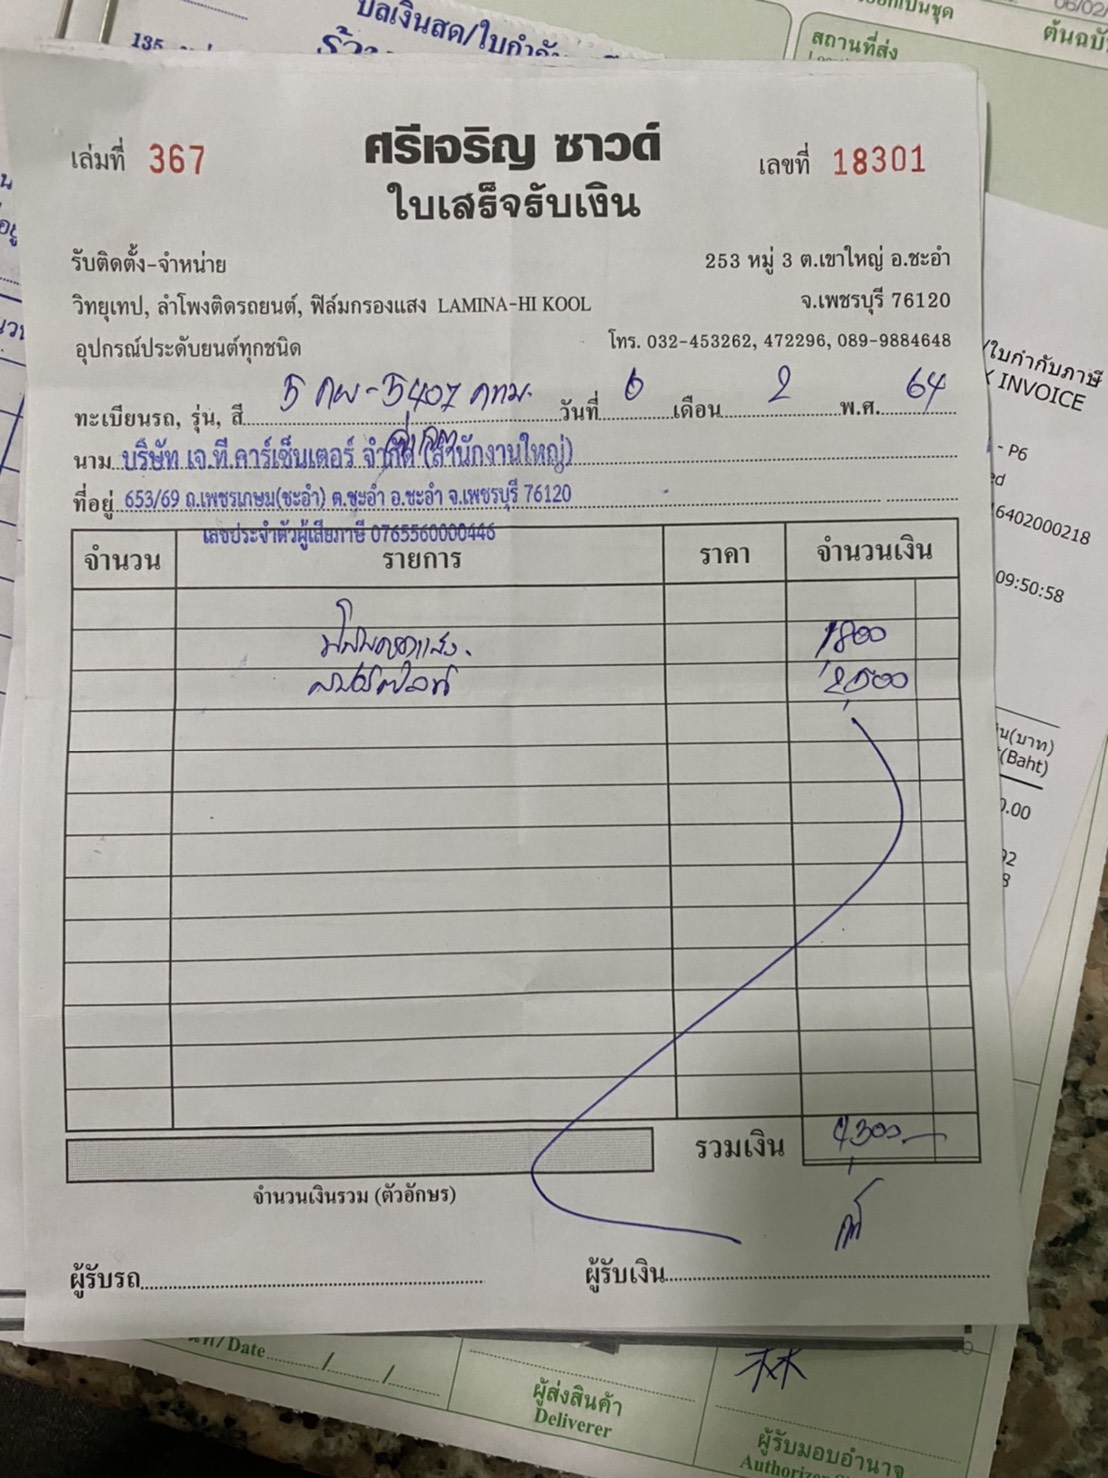 บิลเงินสด/ใบกำกับ
135
สถานที่ส่ง
ต้นฉบับ
เล่มที่ 367
ศรีเจริญ ซาวด์
เลขที่ 18301
ใบเสร็จรับเงิน
รับติดตั้ง-จำหน่าย
253 หมู่ 3 ต.เขาใหญ่ อ.ชะอำ
วิทยุเทป, ลำโพงติดรถยนต์, ฟิล์มกรองแสง LAMINA-HI KOOL
จ.เพชรบุรี 76120
อุปกรณ์ประดับยนต์ทุกชนิด
โทร. 032-453262, 472296, 089-9884648
ทะเบียนรถ, รุ่น, สี 5 กผ-5407 กทม. วันที่ 6 เดือน 2 พ.ศ. 64
นาม บริษัท เจ.ที.คาร์เซ็นเตอร์ จำกัด (สำนักงานใหญ่)
ที่อยู่ 653/69 ถ.เพชรเกษม(ชะอำ) ต.ชะอำ อ.ชะอำ จ.เพชรบุรี 76120
เลขประจำตัวผู้เสียภาษี 0765560000446
จำนวน รายการ ราคา จำนวนเงิน
1,800
2,500
รวมเงิน 4,300
จำนวนเงินรวม (ตัวอักษร)
ผู้รับรถ
ผู้รับเงิน
/ใบกำกับภาษี
INVOICE
- P6
6402000218
09:50:58
(บาท)
(Baht)
/Date
ผู้ส่งสินค้า
Deliverer
ผู้รับมอบอำนาจ